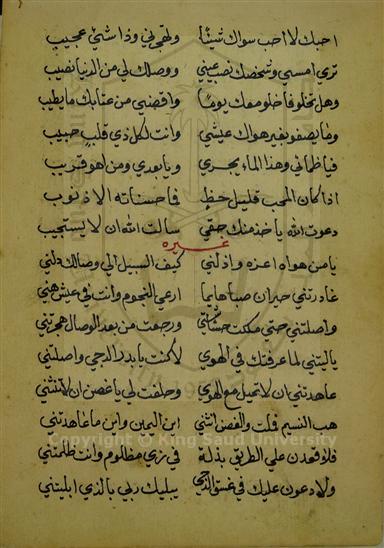 احبك لا احب سواك شيئا ولتهجرني وذا شئ عجيب
تري امسي وشخصك نصب عيني ووصلك لي من الدنيا نصيب
وهل تخلو فاخلو معك يوما واقضني من عتابك ما يطيب
وما يصفو بغير هواك عيشي وانت لكل ذي قلب حبيب
فيا ظمائي وهذا الماء يجري ويا بعدي ومن اهو قريب
اذا كان المحب قليل حظ فما حسناته الا ذنوب
دعوت الله ياخذ منك حقي سالت الله ان لا يستجيب
غيره
يا من هواه اعزه واذلني كيف السبيل الي وصالك دلني
غادرتني حيران صبا هايما ارعي النجوم وانت في عيش هني
واصلتني حتي ملكت حشاشتي ورجعت من بعد الوصال هجرتني
ياليتني لما عرفتك في الهوي لا كنت يا بدر الدجي واصلتني
عاهدتني ان لا تميل مع الهوي وحلفت لي يا غصن ان لا تنثني
هب النسيم فلت والغصن انثني اين اليمين واين ما عاهدتني
فلاقعدن علي الطريق بذلة في زي مظلوم وانت ظلمتني
ولادعون عليك في غسق الدجي يبليك ربي بالذي ابليتني
Copyright © King Saud University